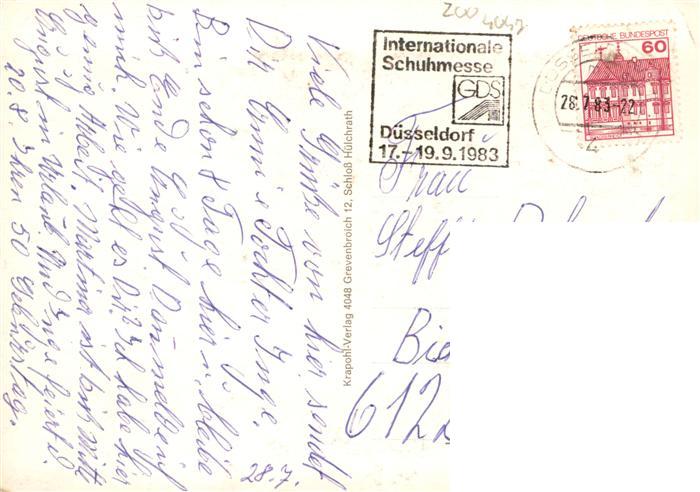 200 4047
Internationale
Schuhmesse
GDS
Düsseldorf
17.–19.9.1983
DEUTSCHE BUNDESPOST
60
28.7.83-22
Frau
Steffi
Bie
612
Krapohl-Verlag 4048 Grevenbroich 12, Schloß Hülchrath
28.7.
Viele Grüße von hier sendet
Dir Tochter Inge.
Bin schon 8 Tage hier u. bleibe
bis Ende August. Dann melde ich
mich. Wie geht es Dir? Ich habe hier
genug Arbeit. Martina ist bis Mitte
August in Urlaub. Und Inge feiert d.
20.8. Ihren 50 Geburtstag.